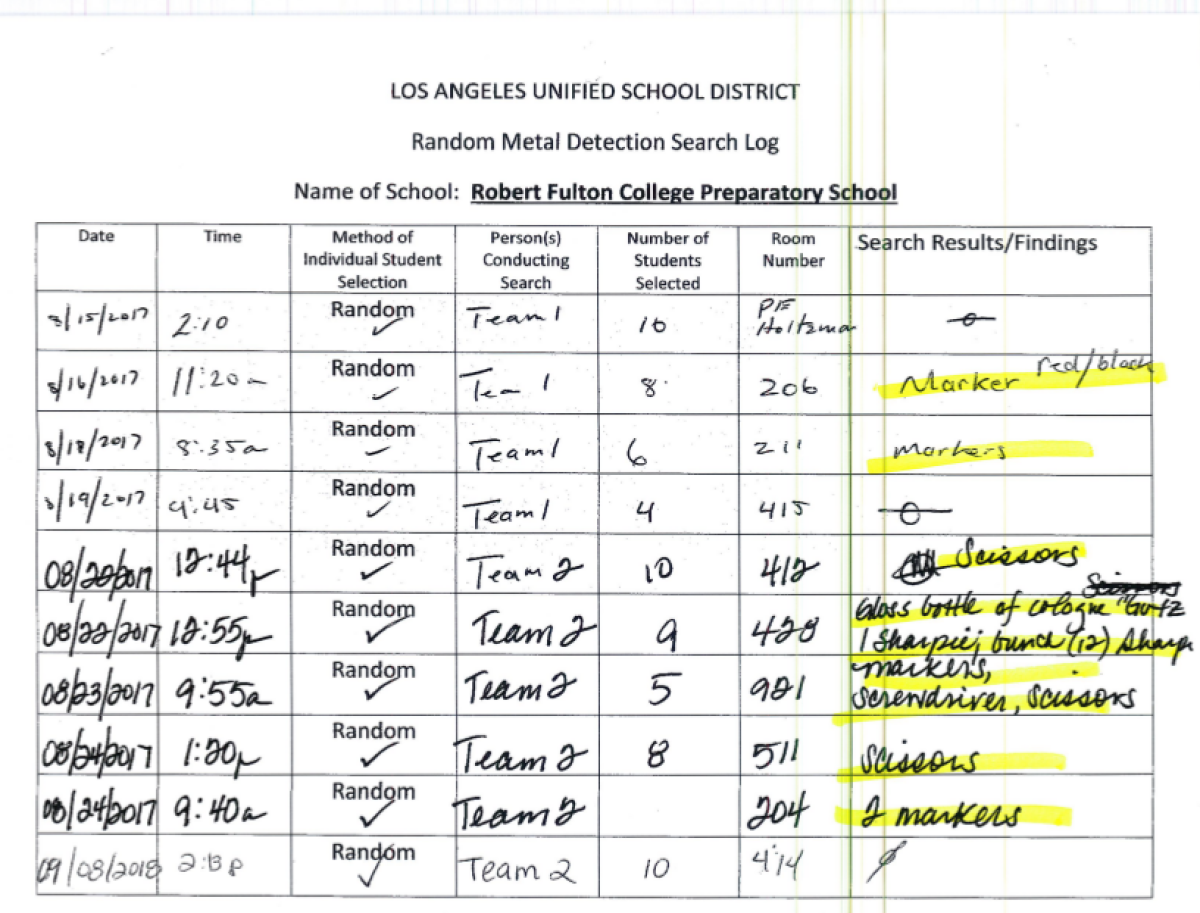 LOS ANGELES UNIFIED SCHOOL DISTRICT
Random Metal Detection Search Log
Name of School: Robert Fulton College Preparatory School
Date Time Method of Individual Student Selection Person(s) Conducting Search Number of Students Selected Room Number Search Results/Findings
8/15/2017 2:10 Random ✓ Team 1 16 PE Holtzman
8/16/2017 11:20 a Random ✓ Team 1 8 206 Marker red/black
8/18/2017 8:35a Random ✓ Team 1 6 211 Markers
8/19/2017 9:45 Random ✓ Team 1 4 415
08/2017 12:44p Random ✓ Team 2 10 412 Scissors
08/22/2017 12:55p Random ✓ Team 2 9 428 Scissors Glass bottle of cologne 1 Sharpie; bunch (12) Sharpi markers,
08/23/2017 9:55a Random ✓ Team 2 5 921 Screwdriver, Scissors
08/24/2017 1:20p Random ✓ Team 2 8 511 Scissors
08/24/2017 9:40a Random ✓ Team 2 204 2 markers
09/08/2018 2:13 p Random ✓ Team 2 10 414 ∅